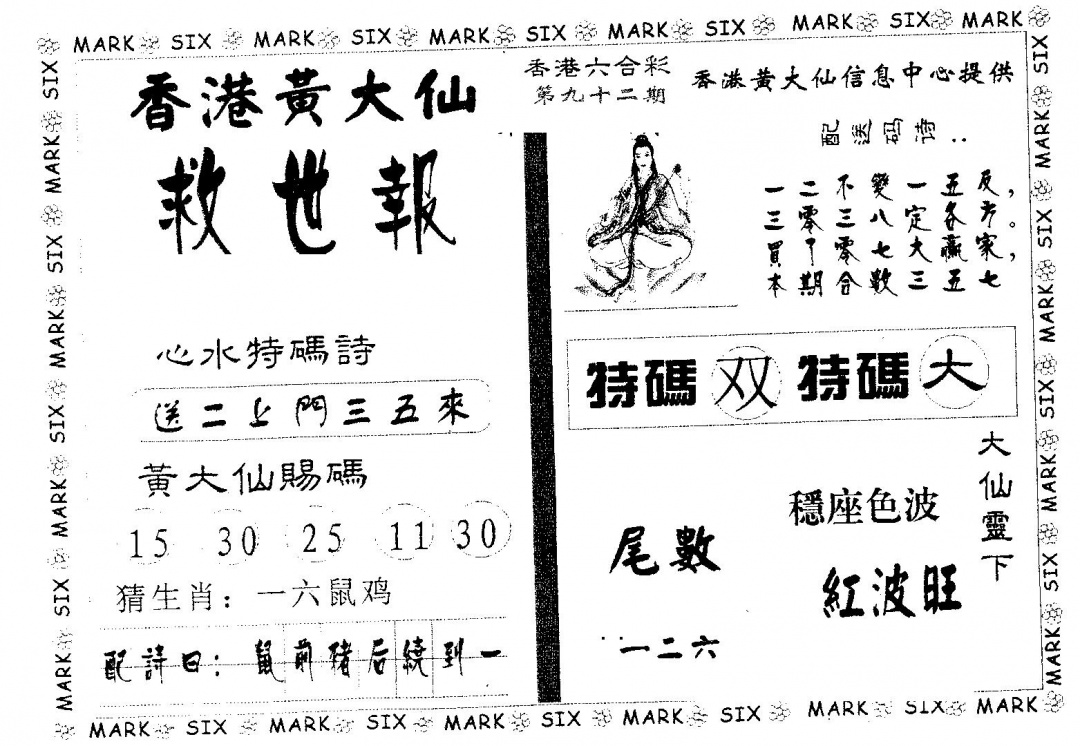 MARK SIX MARK SIX MARK SIX MARK SIX MARK SIX MARK
香港黃大仙
救世報
心水特碼詩
送二上門三五來
黃大仙賜碼
15 30 25 11 30
猜生肖：一六鼠鸡
配詩曰：鼠前豬后繞到一
香港六合彩
第九十二期
香港黃大仙信息中心提供
配送码诗：
一二不變一五反，
三零三八定各方。
買了零七大贏家，
本期合数三五七
特碼 双 特碼 大
大仙靈下
穩座色波
紅波旺
尾數
一二六
MARK SIX MARK SIX MARK SIX MARK SIX MARK SIX MARK
SIX MARK SIX MARK SIX MARK SIX MARK
SIX MARK SIX MARK SIX MARK SIX MARK